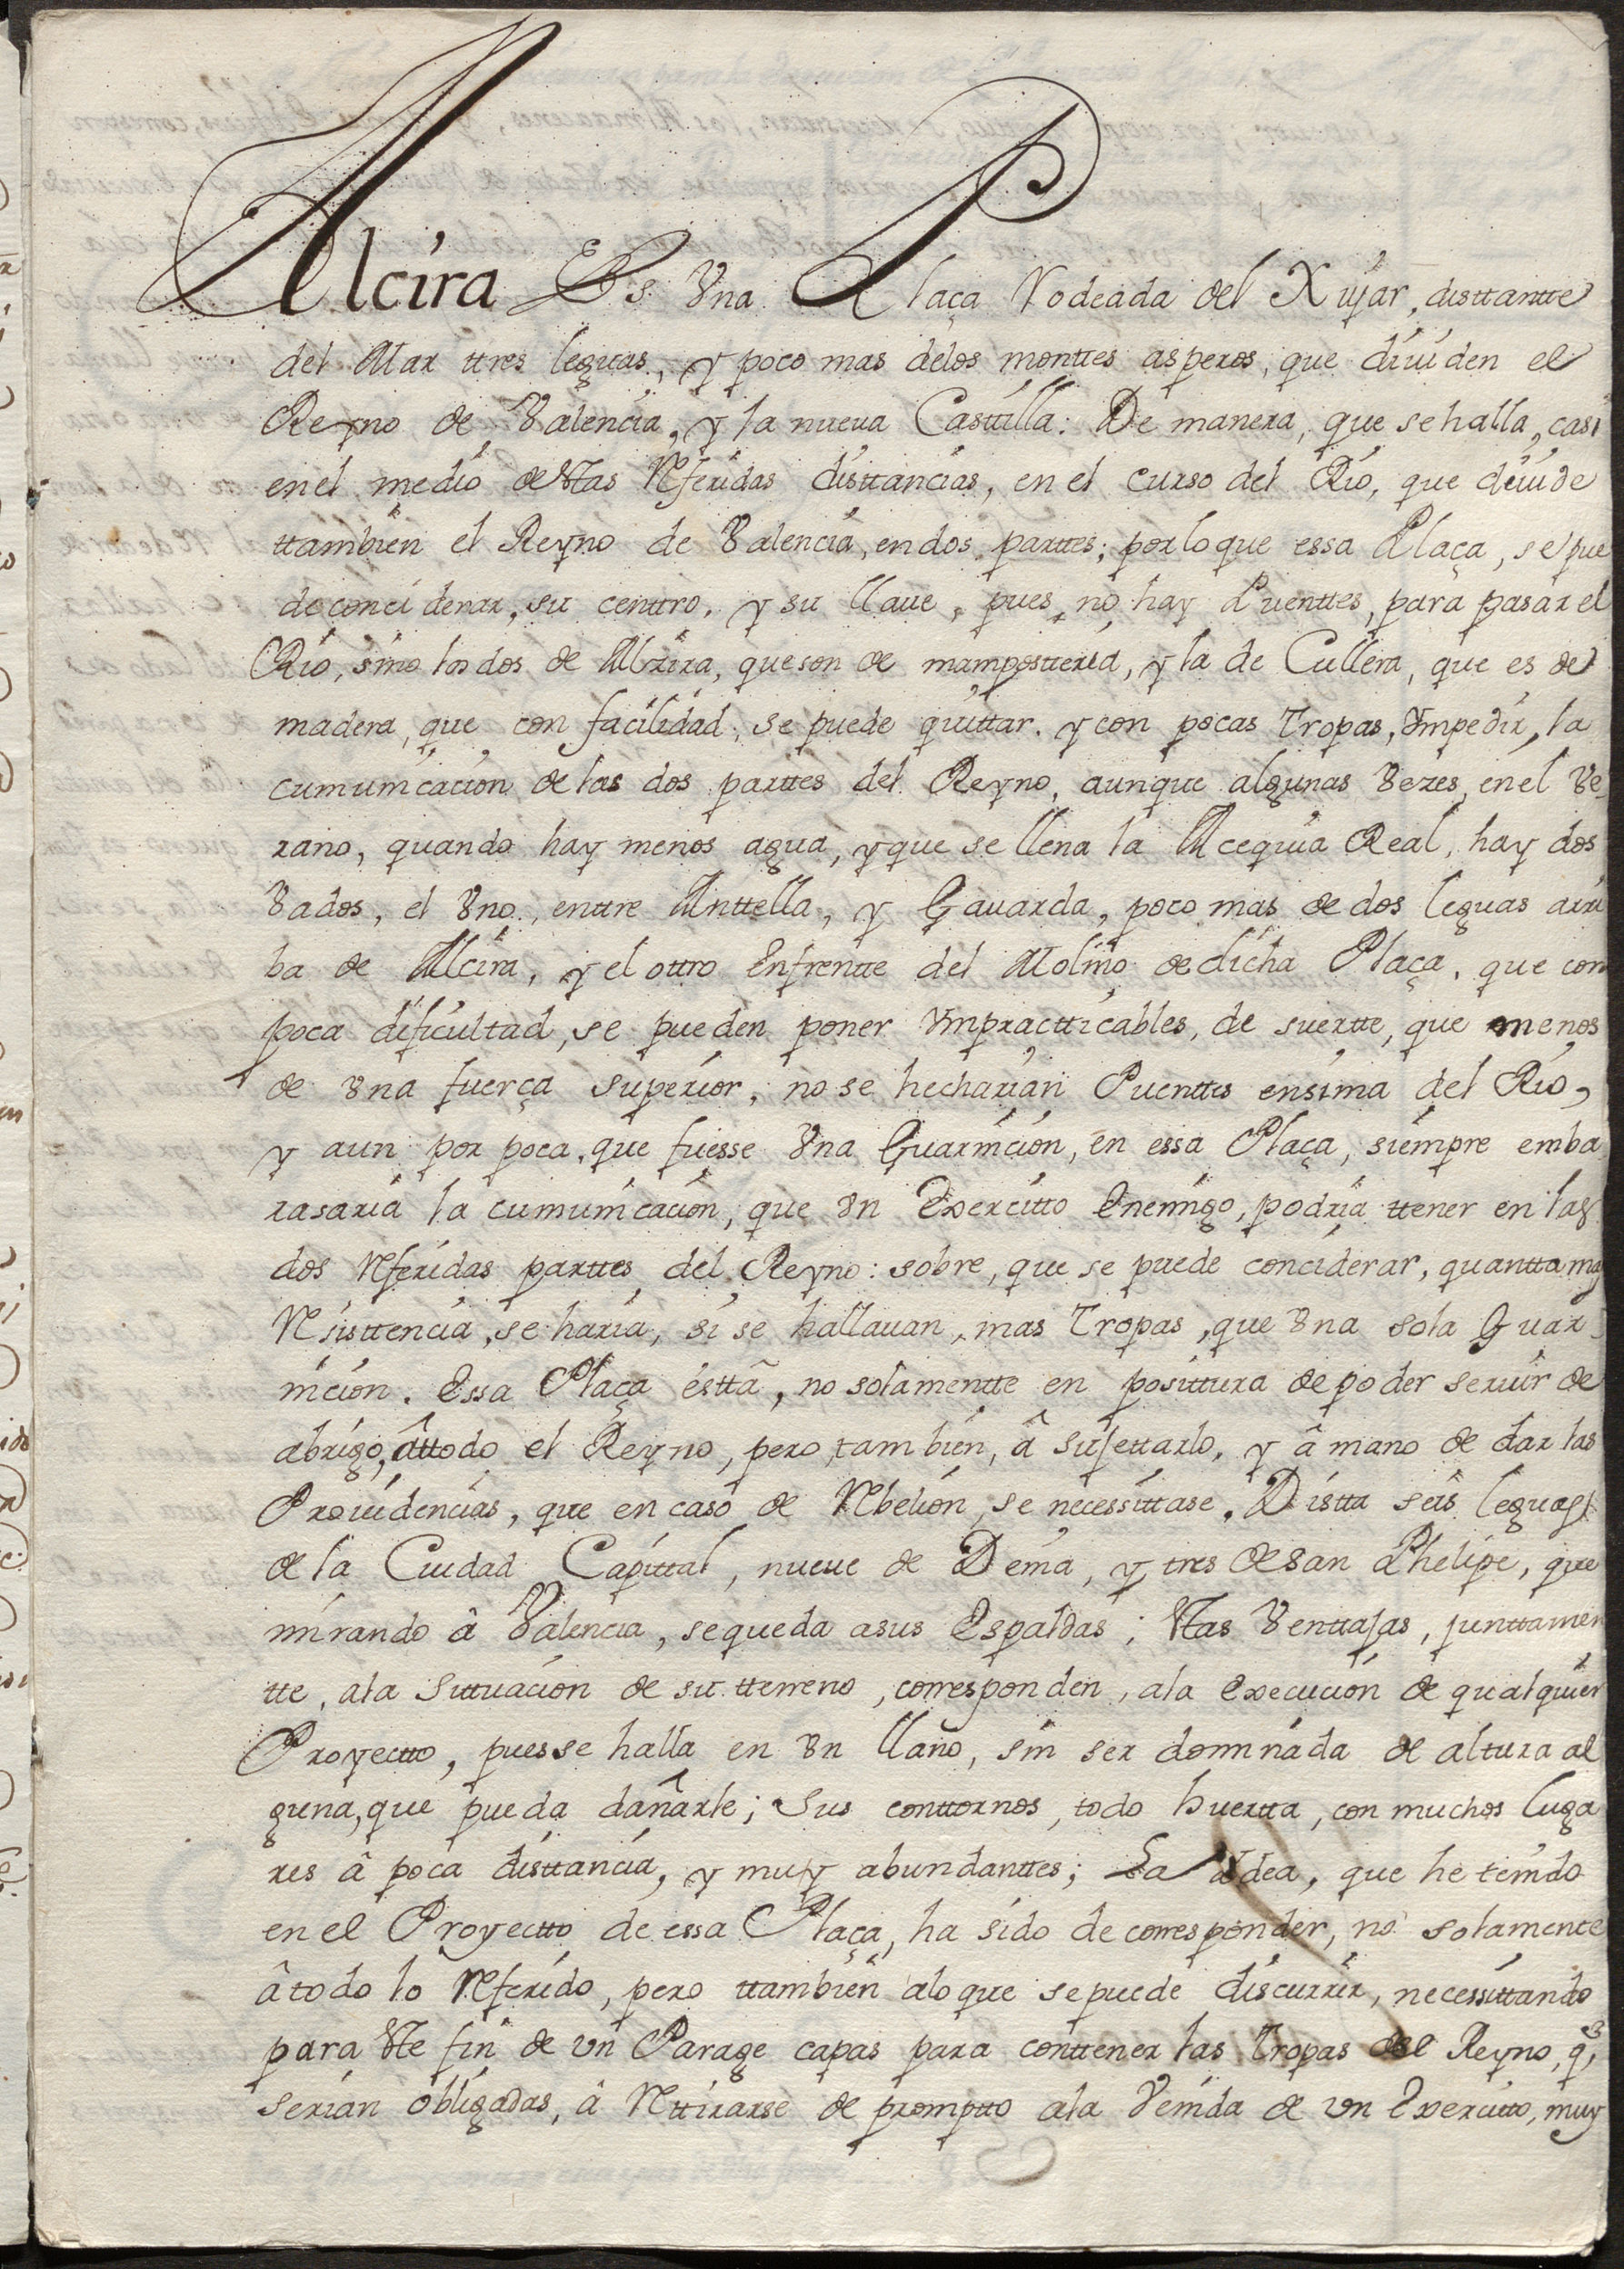 Alcira Es Vna Plaça Rodeada del Xujar, disttantte
del Mar ttres leguas, y poco mas delos monttes asperos, que diuiden el
Reyno de Valencia, y la nueua Casttilla: De manera, que sehalla, casi
enel medio desttas Referidas disttancias, en el curso del Rio, que diuide
ttambien el Reyno de Valencia, endos parttes; porloque essa Plaça, se pue
deconciderar, su centtro, y su llaue, pues, no hay Puenttes, para pasar el
Rio, sino los dos de Alzira, queson de mamposteria, y la de Cullera, que es de
madera, que con facilidad, se puede quittar. y con pocas Tropas, ympedir, la
cumunicacion de las dos parttes del Reyno, aunque algunas Vezes, enel Ve-
rano, quando hay menos agua, y que se llena la Acequia Real, hay dos
Vados, el Vno, enttre Anttella, y Gauarda, poco mas de dos leguas arri
ba de Alcira, y el ottro Enfrentte del Molino dedicha Plaça, que con
poca dificultad, se pueden poner ympractticables, de suertte, que menos
de Vna fuerça superior, no se hecharian Puenttes ensima del Rio,
y aun por poca, que fuesse Vna Guarnicion, en essa Plaça, siempre emba
rasaria la cumunicacion, que Vn Exercitto Enemigo, podria ttener en las
dos Referidas parttes del Reyno: sobre, que se puede conciderar, quantta mas
Resisttencia, se haria, si se hallauan, mas Tropas, que Vna sola Guar-
nicion. Essa Plaça esttâ, no solamentte en posittura depoder seruir de
abrigo, âttodo el Reyno, pero, tambien, â sujettarlo, y â mano de dar las
Prouidencias, que encaso de Rebelion, se necessittase. Distta seis leguas
de la Ciudad Capittal, nueue de Denia, y tres deSan Phelipe, que
mirando â Valencia, sequeda asus Espaldas; Esttas Venttajas, junttamen
tte, ala Sittuacion de su tterreno, corresponden, ala execucion de qualquier
Proyectto, puesse halla en Vn llano, sin ser dominada de altura al
guna, que pueda dañarle; Sus conttornos, todo huertta, con muchos luga
res â poca disttancia, y muy abundanttes; La Ydea, que he tenido
en el Proyectto de essa Plaça, ha sido de corresponder, no solamente
âtodo lo Referido, pero ttambien aloque sepuede discurrir, necessittando
para Estte fin de vn Parage capas para conttener las Tropas del Reyno, q̃
serian obligadas, â Rettirarse de promptto ala Venida de vn Exercitto, muy